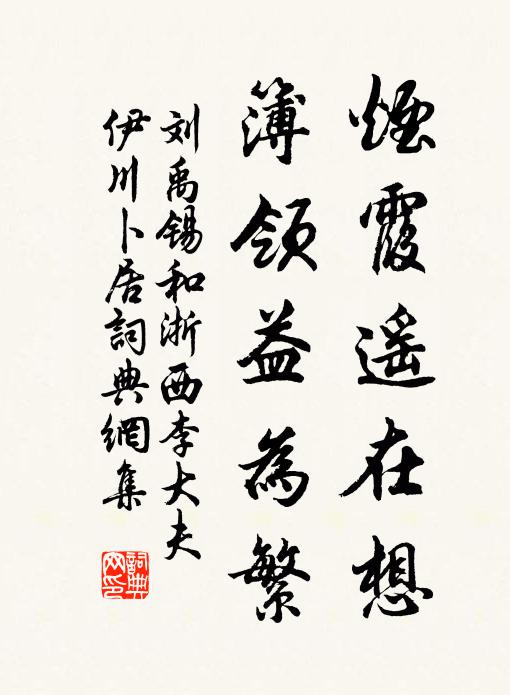 煙霞遥在想
簿領益為繁
刘禹锡和浙西李大夫
伊川卜居詞典網集
詞典
网印